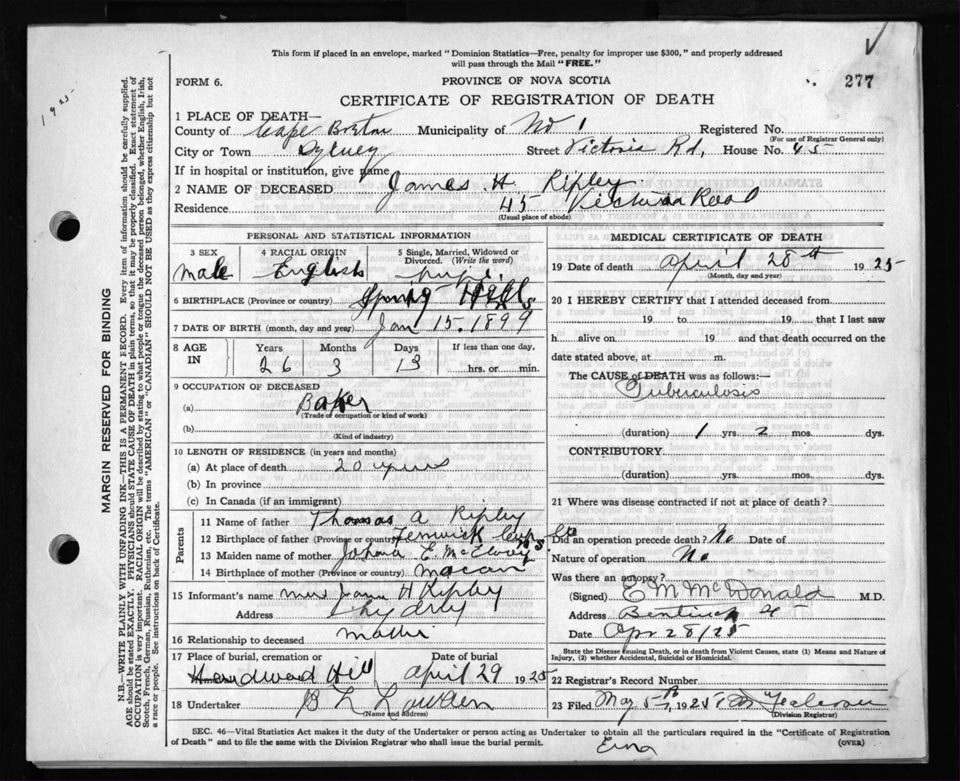 This form if placed in an envelope, marked "Dominion Statistics—Free, penalty for improper use $300," and properly addressed
will pass through the Mail "FREE."
277
FORM 6.
PROVINCE OF NOVA SCOTIA
CERTIFICATE OF REGISTRATION OF DEATH
1 PLACE OF DEATH—
County of Cape Breton Municipality of No 1 Registered No.
(For use of Registrar General only)
City or Town Sydney Street Victoria Rd, House No. 45
If in hospital or institution, give name
2 NAME OF DECEASED James H. Ripley
Residence 45 Victoria Road
(Usual place of abode)
PERSONAL AND STATISTICAL INFORMATION
3 SEX
Male
4 RACIAL ORIGIN
English
5 Single, Married, Widowed or
Divorced. (Write the word)
6 BIRTHPLACE (Province or country) Spring Hills
7 DATE OF BIRTH (month, day and year) Jan 15. 1899
8 AGE IN
Years Months Days If less than one day,
26 3 13 hrs. or min.
9 OCCUPATION OF DECEASED
(a) Baker
(Trade or occupation or kind of work)
(b)
(Kind of industry)
10 LENGTH OF RESIDENCE (in years and months)
(a) At place of death 20 years
(b) In province
(c) In Canada (if an immigrant)
Parents
11 Name of father Thomas A Ripley
12 Birthplace of father (Province or country) Fenwick
13 Maiden name of mother E. McElvoy
14 Birthplace of mother (Province or country) Macan
15 Informant's name Mrs H Ripley
Address Sydney
16 Relationship to deceased
17 Place of burial, cremation or Date of burial
Hardwood Hill April 29 1925
18 Undertaker B L Lowden
(Name and address)
MEDICAL CERTIFICATE OF DEATH
19 Date of death April 28th 1925
(Month, day and year)
20 I HEREBY CERTIFY that I attended deceased from
19 to 19 that I last saw
h alive on 19 and that death occurred on the
date stated above, at m.
The CAUSE of DEATH was as follows:—
Tuberculosis
(duration) 1 yrs. 2 mos. dys.
CONTRIBUTORY
(duration) yrs. mos. dys.
21 Where was disease contracted if not at place of death?
Did an operation precede death? No Date of
Nature of operation No
Was there an autopsy?
(Signed) E M McDonald M.D.
Address Bentinck St
Date Apr 28/25
State the Disease causing Death, or in death from Violent Causes, state (1) Means and Nature of
Injury, (2) whether Accidental, Suicidal or Homicidal.
22 Registrar's Record Number
23 Filed May 1925
(Division Registrar)
SEC. 46—Vital Statistics Act makes it the duty of the Undertaker or person acting as Undertaker to obtain all the particulars required in the "Certificate of Registration
of Death" and to file the same with the Division Registrar who shall issue the burial permit.
(OVER)
MARGIN RESERVED FOR BINDING
N.B.—WRITE PLAINLY WITH UNFADING INK—THIS IS A PERMANENT RECORD. Every item of information should be carefully supplied.
AGE should be stated EXACTLY. PHYSICIANS should STATE CAUSE OF DEATH in plain terms, so that it may be properly classified. Exact statement of
OCCUPATION is very important. RACIAL ORIGIN will be described by stating to what people or tongue the deceased person belonged, whether English, Irish,
Scotch, French, German, Russian, Ruthenian, etc. The terms "AMERICAN" or "CANADIAN" SHOULD NOT BE USED as they express citizenship but not
a race or people. See instructions on back of Certificate.